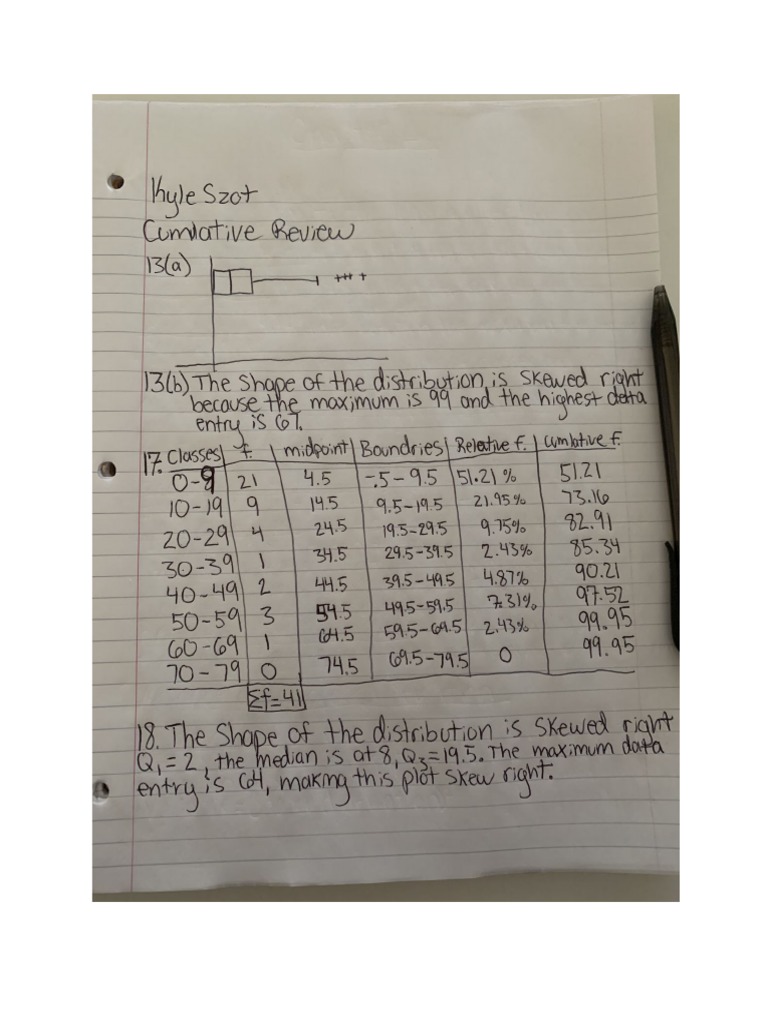 Kyle Szot
Cumlative Review
13(a)
13(b) The shape of the distribution is skewed right
because the maximum is 99 and the highest data
entry is 67.
17. Classes f. midpoint Boundries Relative f. Cumlative f.
0-9 21 4.5 -.5-9.5 51.21% 51.21
10-19 9 14.5 9.5-19.5 21.95% 73.16
20-29 4 24.5 19.5-29.5 9.75% 82.91
30-39 1 34.5 29.5-39.5 2.43% 85.34
40-49 2 44.5 39.5-49.5 4.87% 90.21
50-59 3 54.5 49.5-59.5 7.31% 97.52
60-69 1 64.5 59.5-69.5 2.43% 99.95
70-79 0 74.5 69.5-79.5 0 99.95
Σf=41
18. The Shape of the distribution is skewed right
Q₁=2, the median is at 8, Q₃=19.5. The maximum data
entry is 64, making this plot skew right.